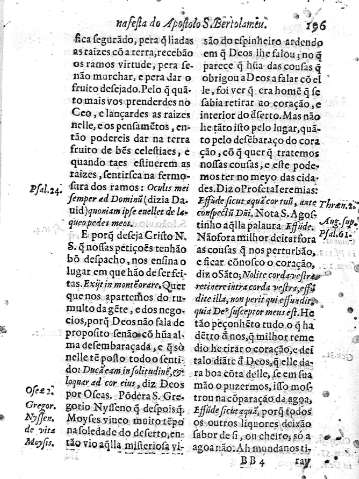 na festa do Apostolo S. Bertolameu. 196
fica segurãdo, pera q̃ liadas
as raizes cõ a terra, recebão
os ramos virtude, pera se
não murchar, e pera dar o
fruito desejado. Pelo q̃ quã
to mais vos prenderdes no
Ceo, e lançardes as raizes
nelle, e os pensamẽtos, en-
tão podereis dar na terra
fruito de bẽs celestiaes, e
quando taes estiuerem as
raizes, sentirsea na fermo-
Psal. 24.
sura dos ramos: Oculus mei
semper ad Dominũ (dizia Da-
uid) quoniam ipse euellet de la-
queo pedes meos.
E porq̃ deseja Cristo N.
S. q̃ nossas petições tenhão
bõ despacho, nos ensina o
lugar em que hão de ser fei-
tas. Exijt in montẽ orare. Quer
que nos apartemos do tu-
multo da gẽte, e dos nego-
cios, porq̃ Deos não fala de
proposito senão cõ hũa al-
ma desembaraçada, e q̃ só
nelle tẽ posto todo o senti-
do: Ducã eam in solitudinẽ, &
Oseæ 2.
loquar ad cor eius, diz Deos
por Oseas. Põdera S. Gre-
Gregor.
gorio Nysseno q̃ despois q̃
Nyssen.
Moyses viuco muito tẽpo
de vita
na soledade do deserto, en-
Moysis.
tão vio aq̃lla misteriosa vi-
são do espinheiro ardendo
em q̃ Deos lhe falou; no q̃
parece q̃ hũa das cousas q̃
obrigou a Deos a falar cõ el
le, foi ver q̃ era homẽ q̃ se
sabia retirar ao coração, e
interior do deserto. Mas não
he tãto isto pelo lugar, quã-
to pelo desẽbaraço do cora
ção, cõ q̃ quer q̃ tratemos
nossas cousas, e este pode-
mos ter no meyo das cida-
des. Diz o Profeta Ieremias:
Effũde sicut aquã cor tuũ, ante
Thren. 2.
conspectũ Dñi. Nota S. Agos-
Aug. sup.
tinho aq̃lla palaura Effũde.
Psal. 61.
Não fora milhor deitar fora
as cousas q̃ nos perturbão,
e ficar cõnosco o coração,
diz o Sãto; Nolite corda vestra
retinere intra corda vestra, effũ
dite illa, non perit qui effundit,
quia De⁹ susceptor meus est. He
tão peçonhẽto tudo o q̃ ha
dẽtro ã nos, q̃ o milhor reme
dio he tirar o coração, e dei
talo diãte d̃ Deos, q̃ elle da-
ra boa cõta delle, se em sua
mão o puzermos, isso mos-
trou na cõparação da agoa,
Effũde sicut aquã, porq̃ todos
os outros liquores deixão
sabor de si, ou cheiro, só a
agoa não. Ah mundanos ti-
BB 4 ray